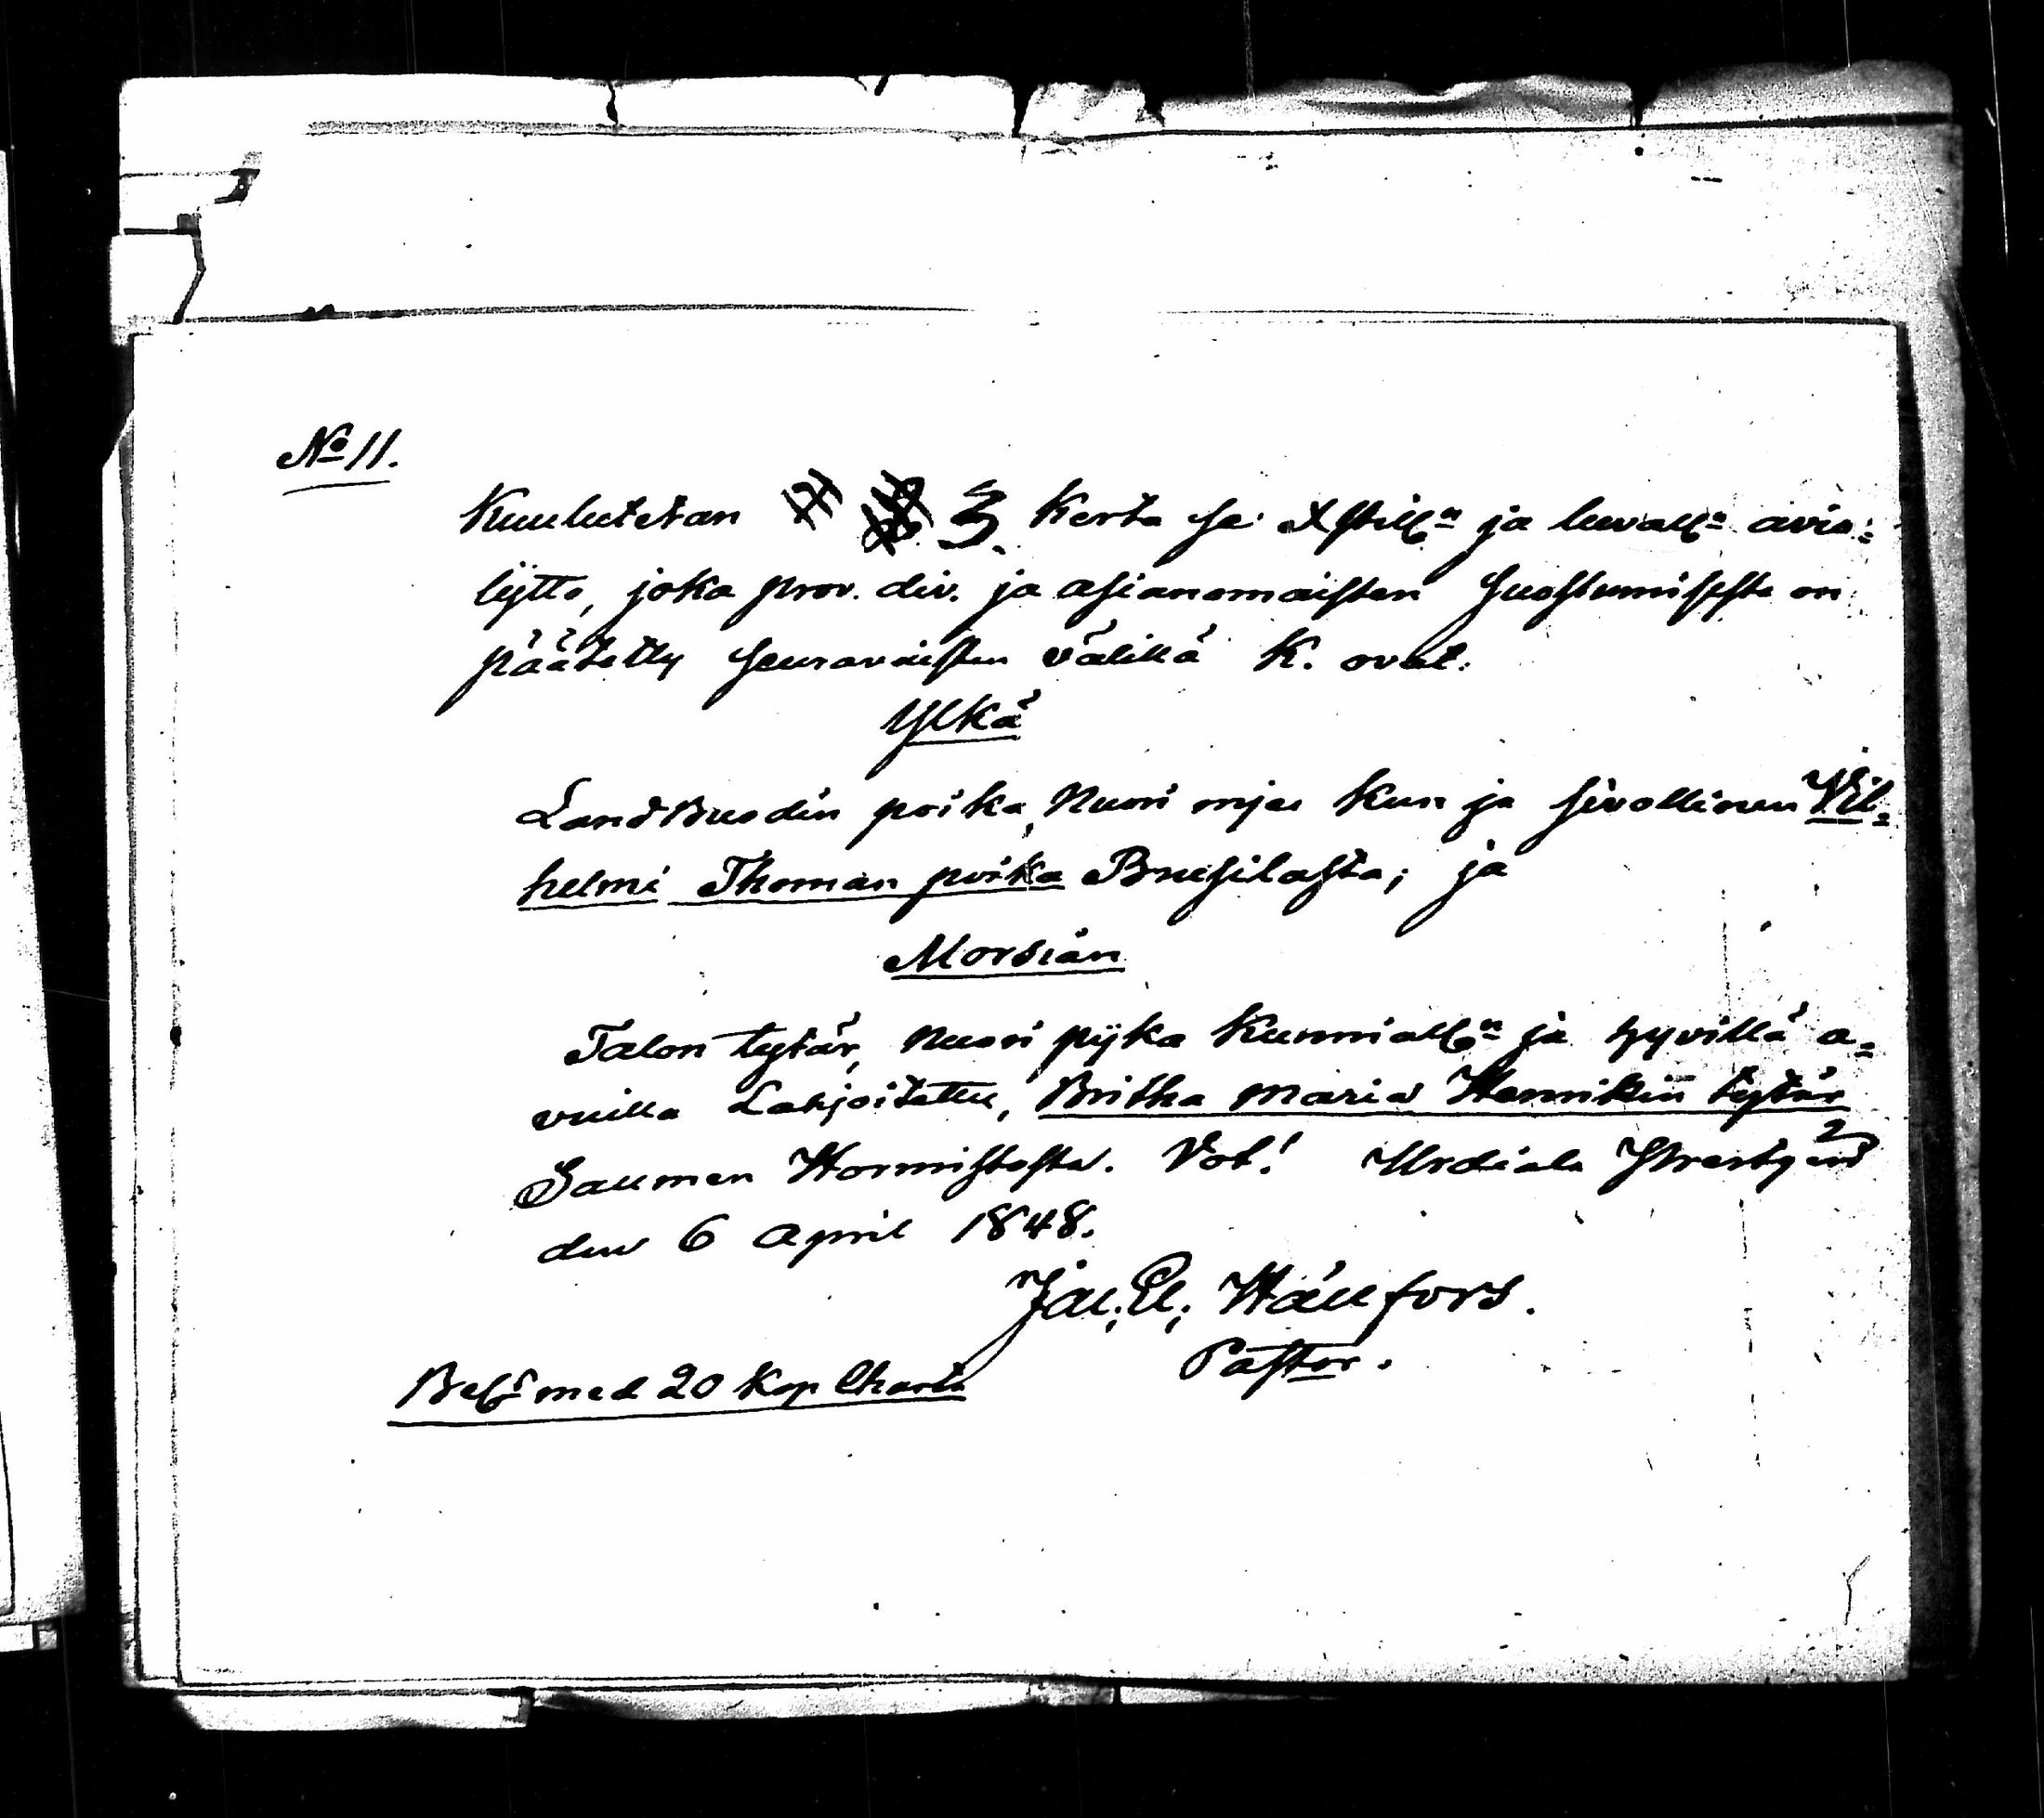 No 11.
Kuulutetan 3. Kerta se Xstilln ja luvalln avio=
lijtto, joka prov. div. ja asianomaisten suostumisesta on
päätetty seuravaisten välillä K. ovat:
Ylkä
Landbuodin poika, Nuori mjes Kun ja sivollinen Vil=
helmi Thoman poika Bnusilasta; ja
Morsian
Talon tytär, nuori pijka Kunnialln ja hyvillä a=
vuilla Lahjoitettu, Britha Maria Henrikin tytär
Saumen Hormistosta. Vot! Urdiala Prestgård
den 6 April 1848.
Jac. El. Hällfors.
Pastor.
Belr med 20 Kop Charta